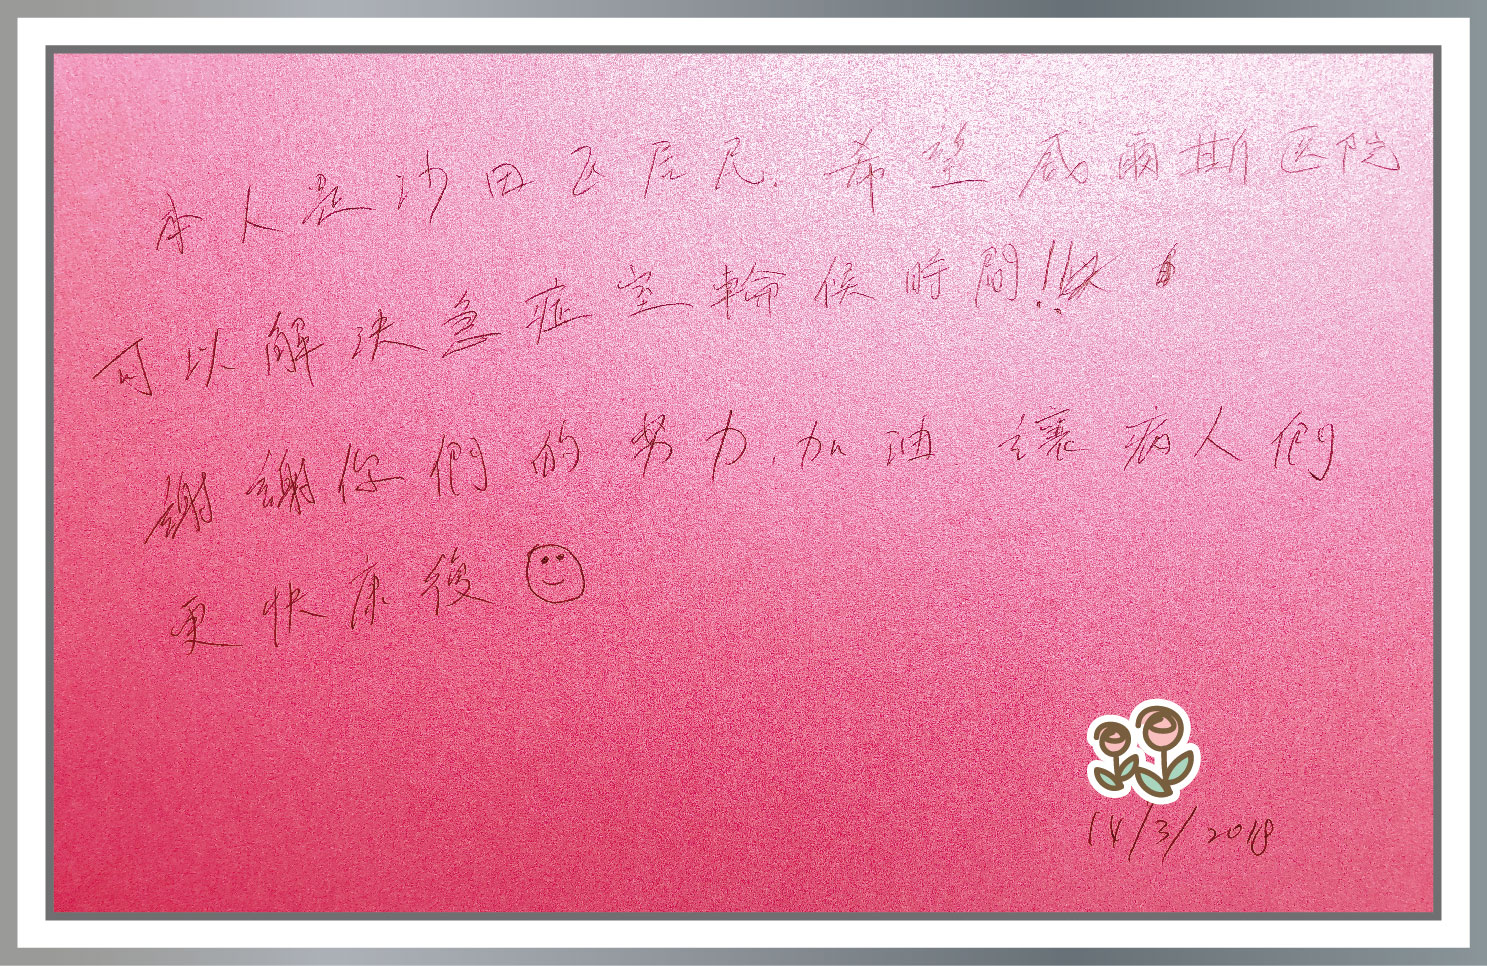 本人是沙田区居民. 希望威爾斯医院
可以解決急症室輪候時間!!
謝謝你們的努力, 加油 讓病人們
更快康復
14/3/2018